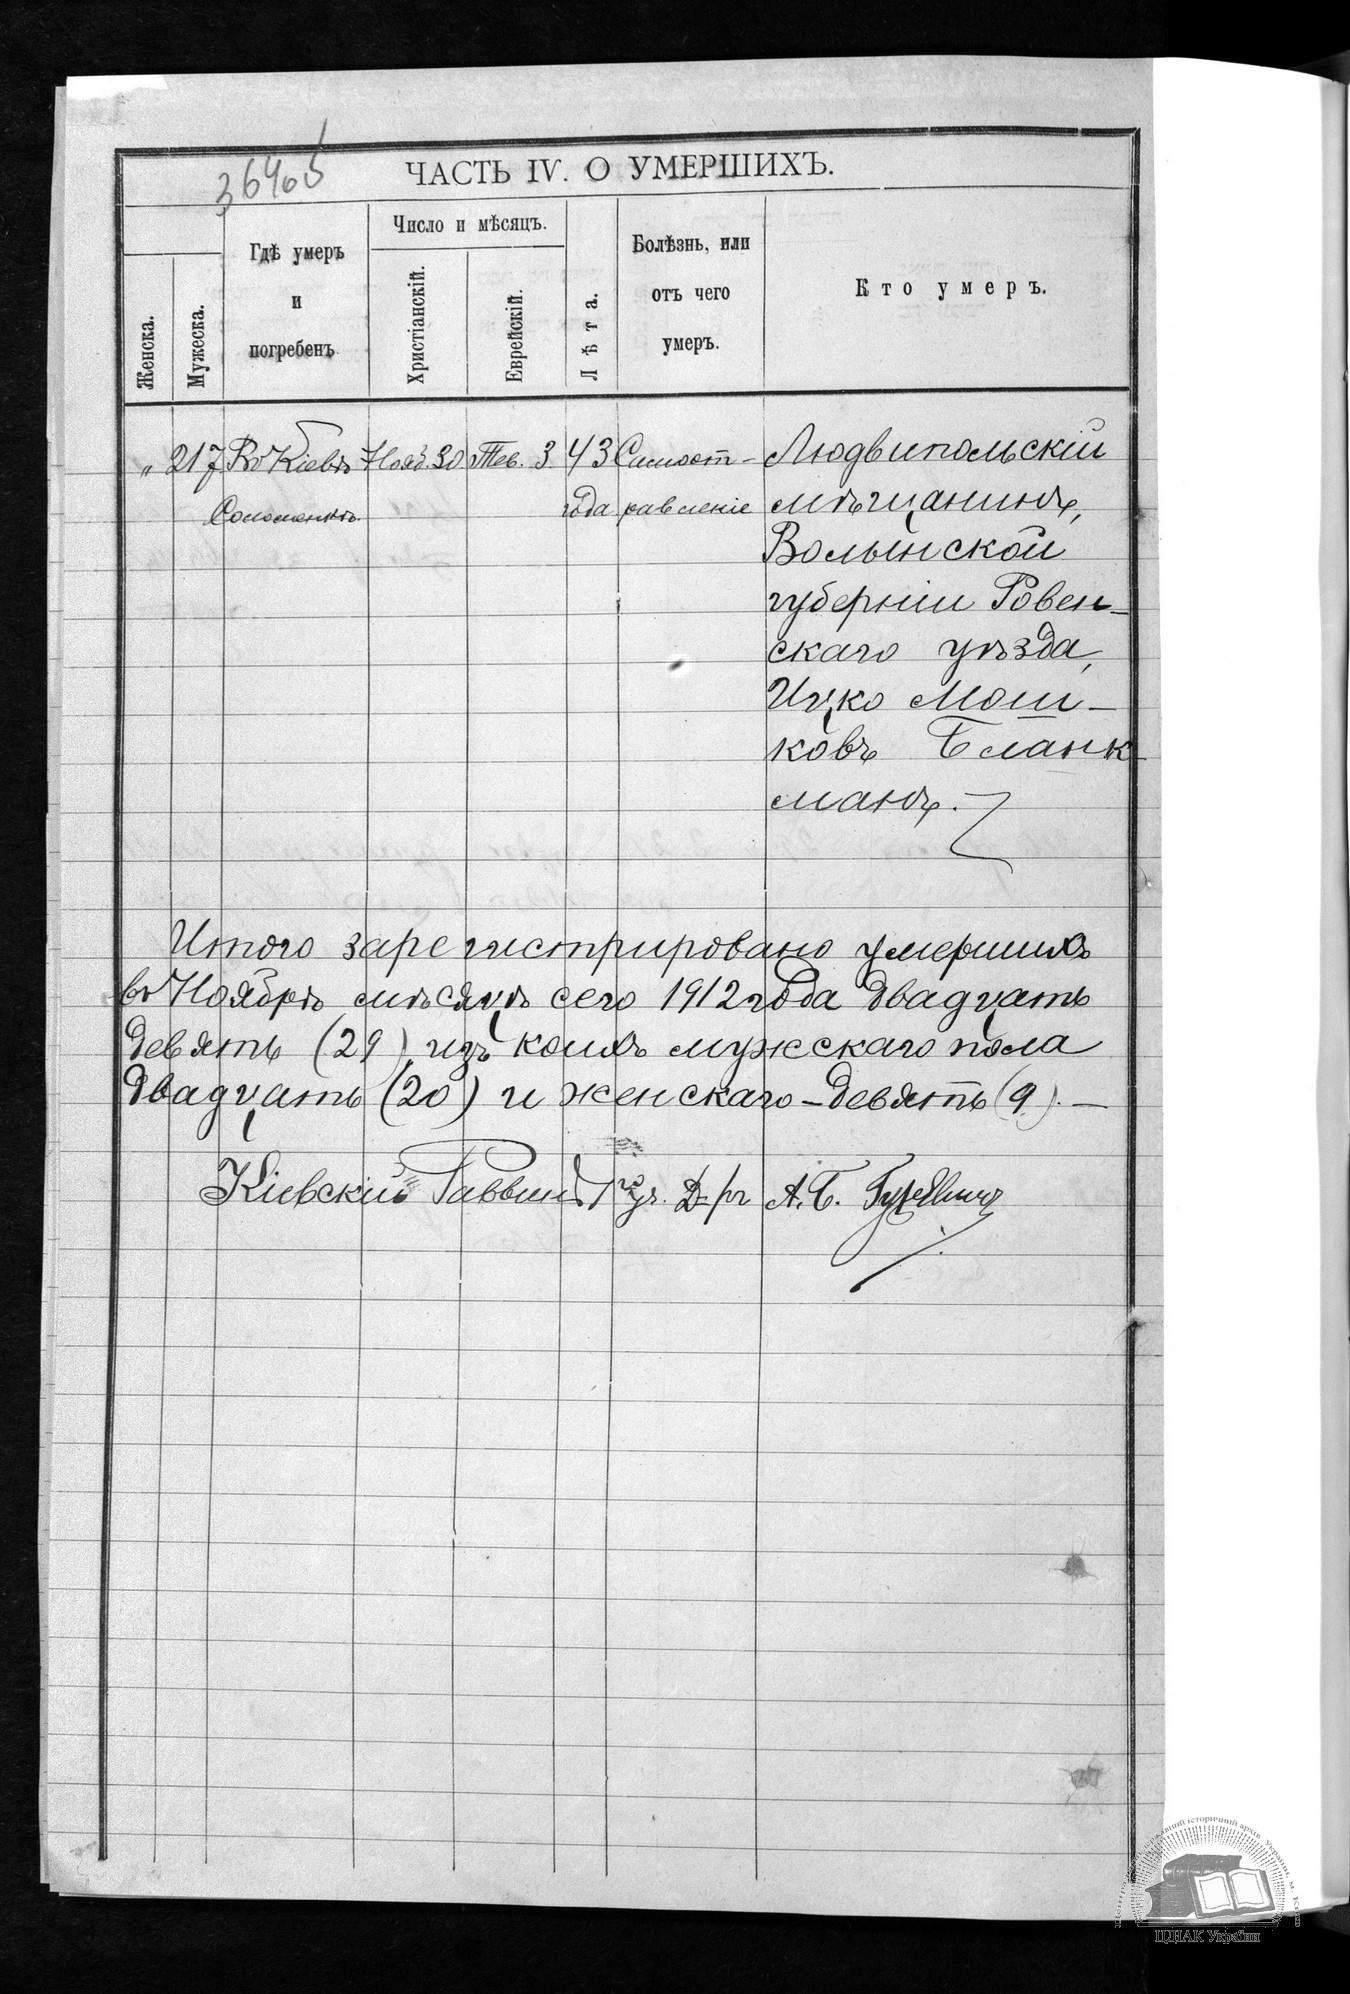 36405
ЧАСТЬ IV. О УМЕРШИХЪ.
Женска.
Мужеска.
Гдѣ умеръ
и
погребенъ
Число и мѣсяцъ.
Христіанскій.
Еврейскій.
Лѣта.
Болѣзнь, или
отъ чего
умеръ.
Кто умеръ.
„ 217 Въ Кіевѣ Нояб. 30 Тев. 3. 43 Самоот- Людвипольскій
Соломенкѣ. года равленіе мѣщанинъ,
Волынской
губерніи Ровен-
скаго уѣзда,
Ицко Мош-
ковъ Бланк-
манъ.
Итого зарегистрировано умершихъ
въ Ноябрѣ мѣсяцѣ сего 1912 года двадцать
девять (29), изъ коихъ мужскаго пола
двадцать (20) и женскаго - девять (9). —
Кіевскій Раввинъ
Д-ръ А. Б. Гуревичъ
ЦДІАК України